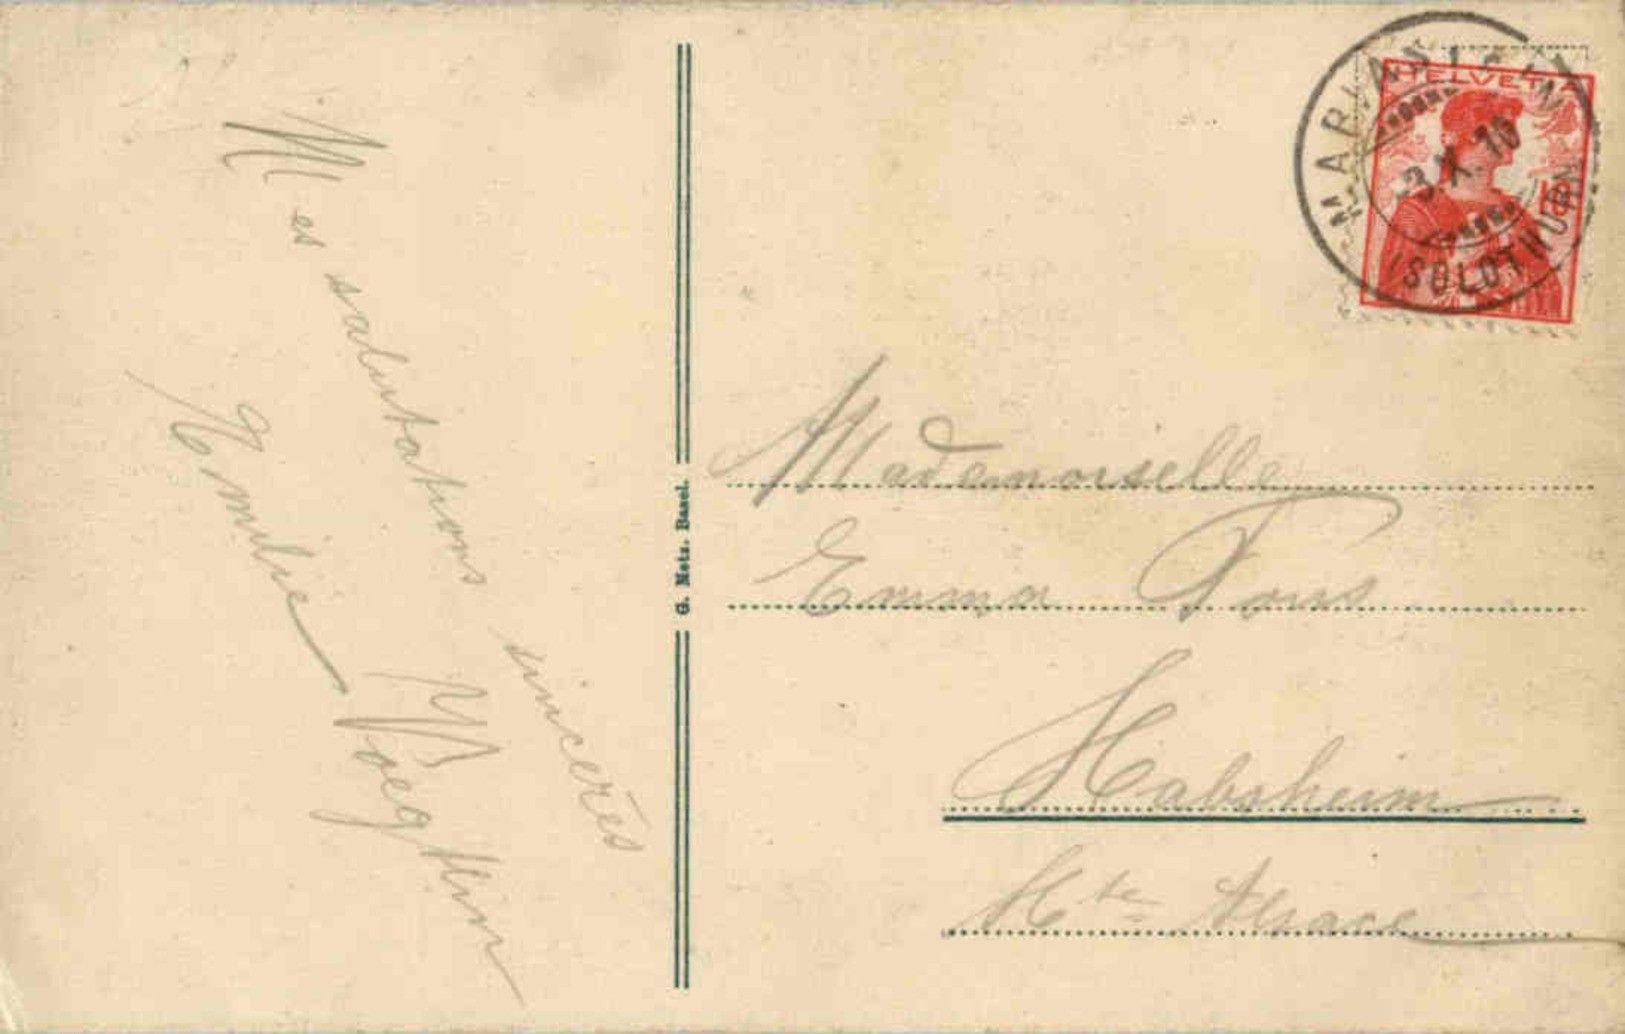 Mes salutations sincères
Emilie Voegtlin
G. Metz. Basel.
HELVETIA
10
MARIASTEIN
3.X.10
(SOLOTHURN)
Mademoiselle
Emma
Habsheim
Hte Alsace